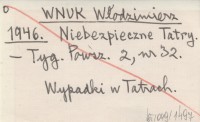 WNUK Włodzimierz
1946. Niebezpieczne Tatry.
– Tyg. Powsz. 2, nr 32.
Wypadki w Tatrach.